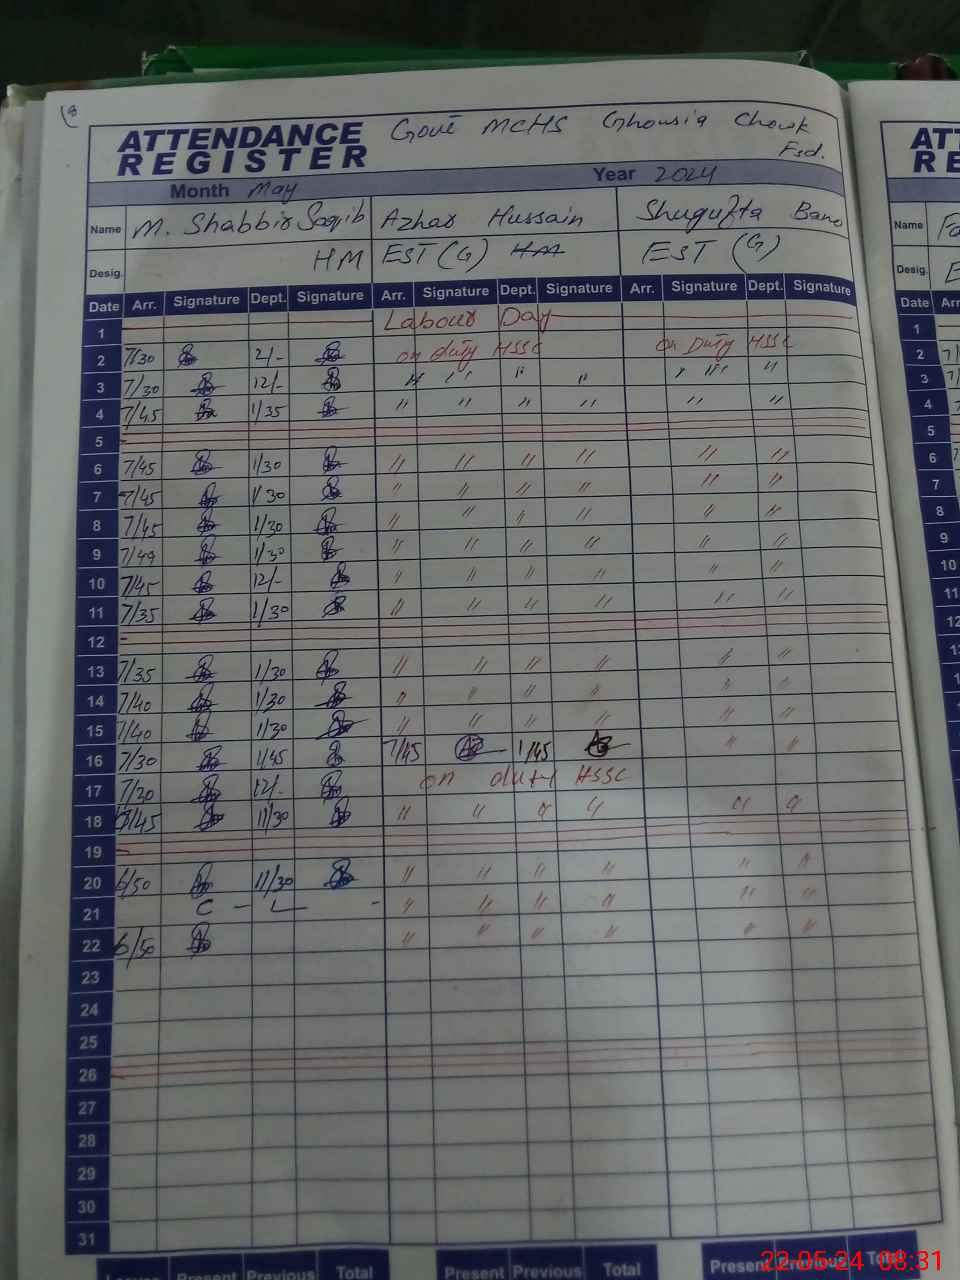 8
ATTENDANCE REGISTER
Govt MCHS Ghousia Chowk
Fsd.
Month May Year 2024
Name M. Shabbir Saqib Azhar Hussain Shugufta Bano
Desig. HM EST (G) HM EST (G)
Date Arr. Signature Dept. Signature Arr. Signature Dept. Signature Arr. Signature Dept. Signature
1 Labour Day
2 7/30 2/- on duty HSSC on Duty HSSC
3 7/30 12/- " " " " " " "
4 7/45 1/35 " " " " " "
5
6 7/45 1/30 " " " " " "
7 7/45 1/30 " " " " " "
8 7/45 1/30 " " " " " "
9 7/49 1/30 " " " " " "
10 7/45 12/- " " " " " "
11 7/35 1/30 " " " " " "
12
13 7/35 1/30 " " " " " "
14 7/40 1/30 " " " " " "
15 7/40 1/30 " " " " " "
16 7/30 1/45 7/45 1/45 " "
17 7/30 12/- on duty HSSC
18 11/30 " " " " " "
19
20 6/50 11/30 " " " " " "
21 C - L - " " " " " "
22 6/50 " " " " " "
23
24
25
26
27
28
29
30
31
Present Previous Total Present Previous Total Present Previous Total
ATT
RE
Name
Desig.
Date Arr
1
2
3
4
5
6
7
8
9
10
11
12
22.05.24 08:31